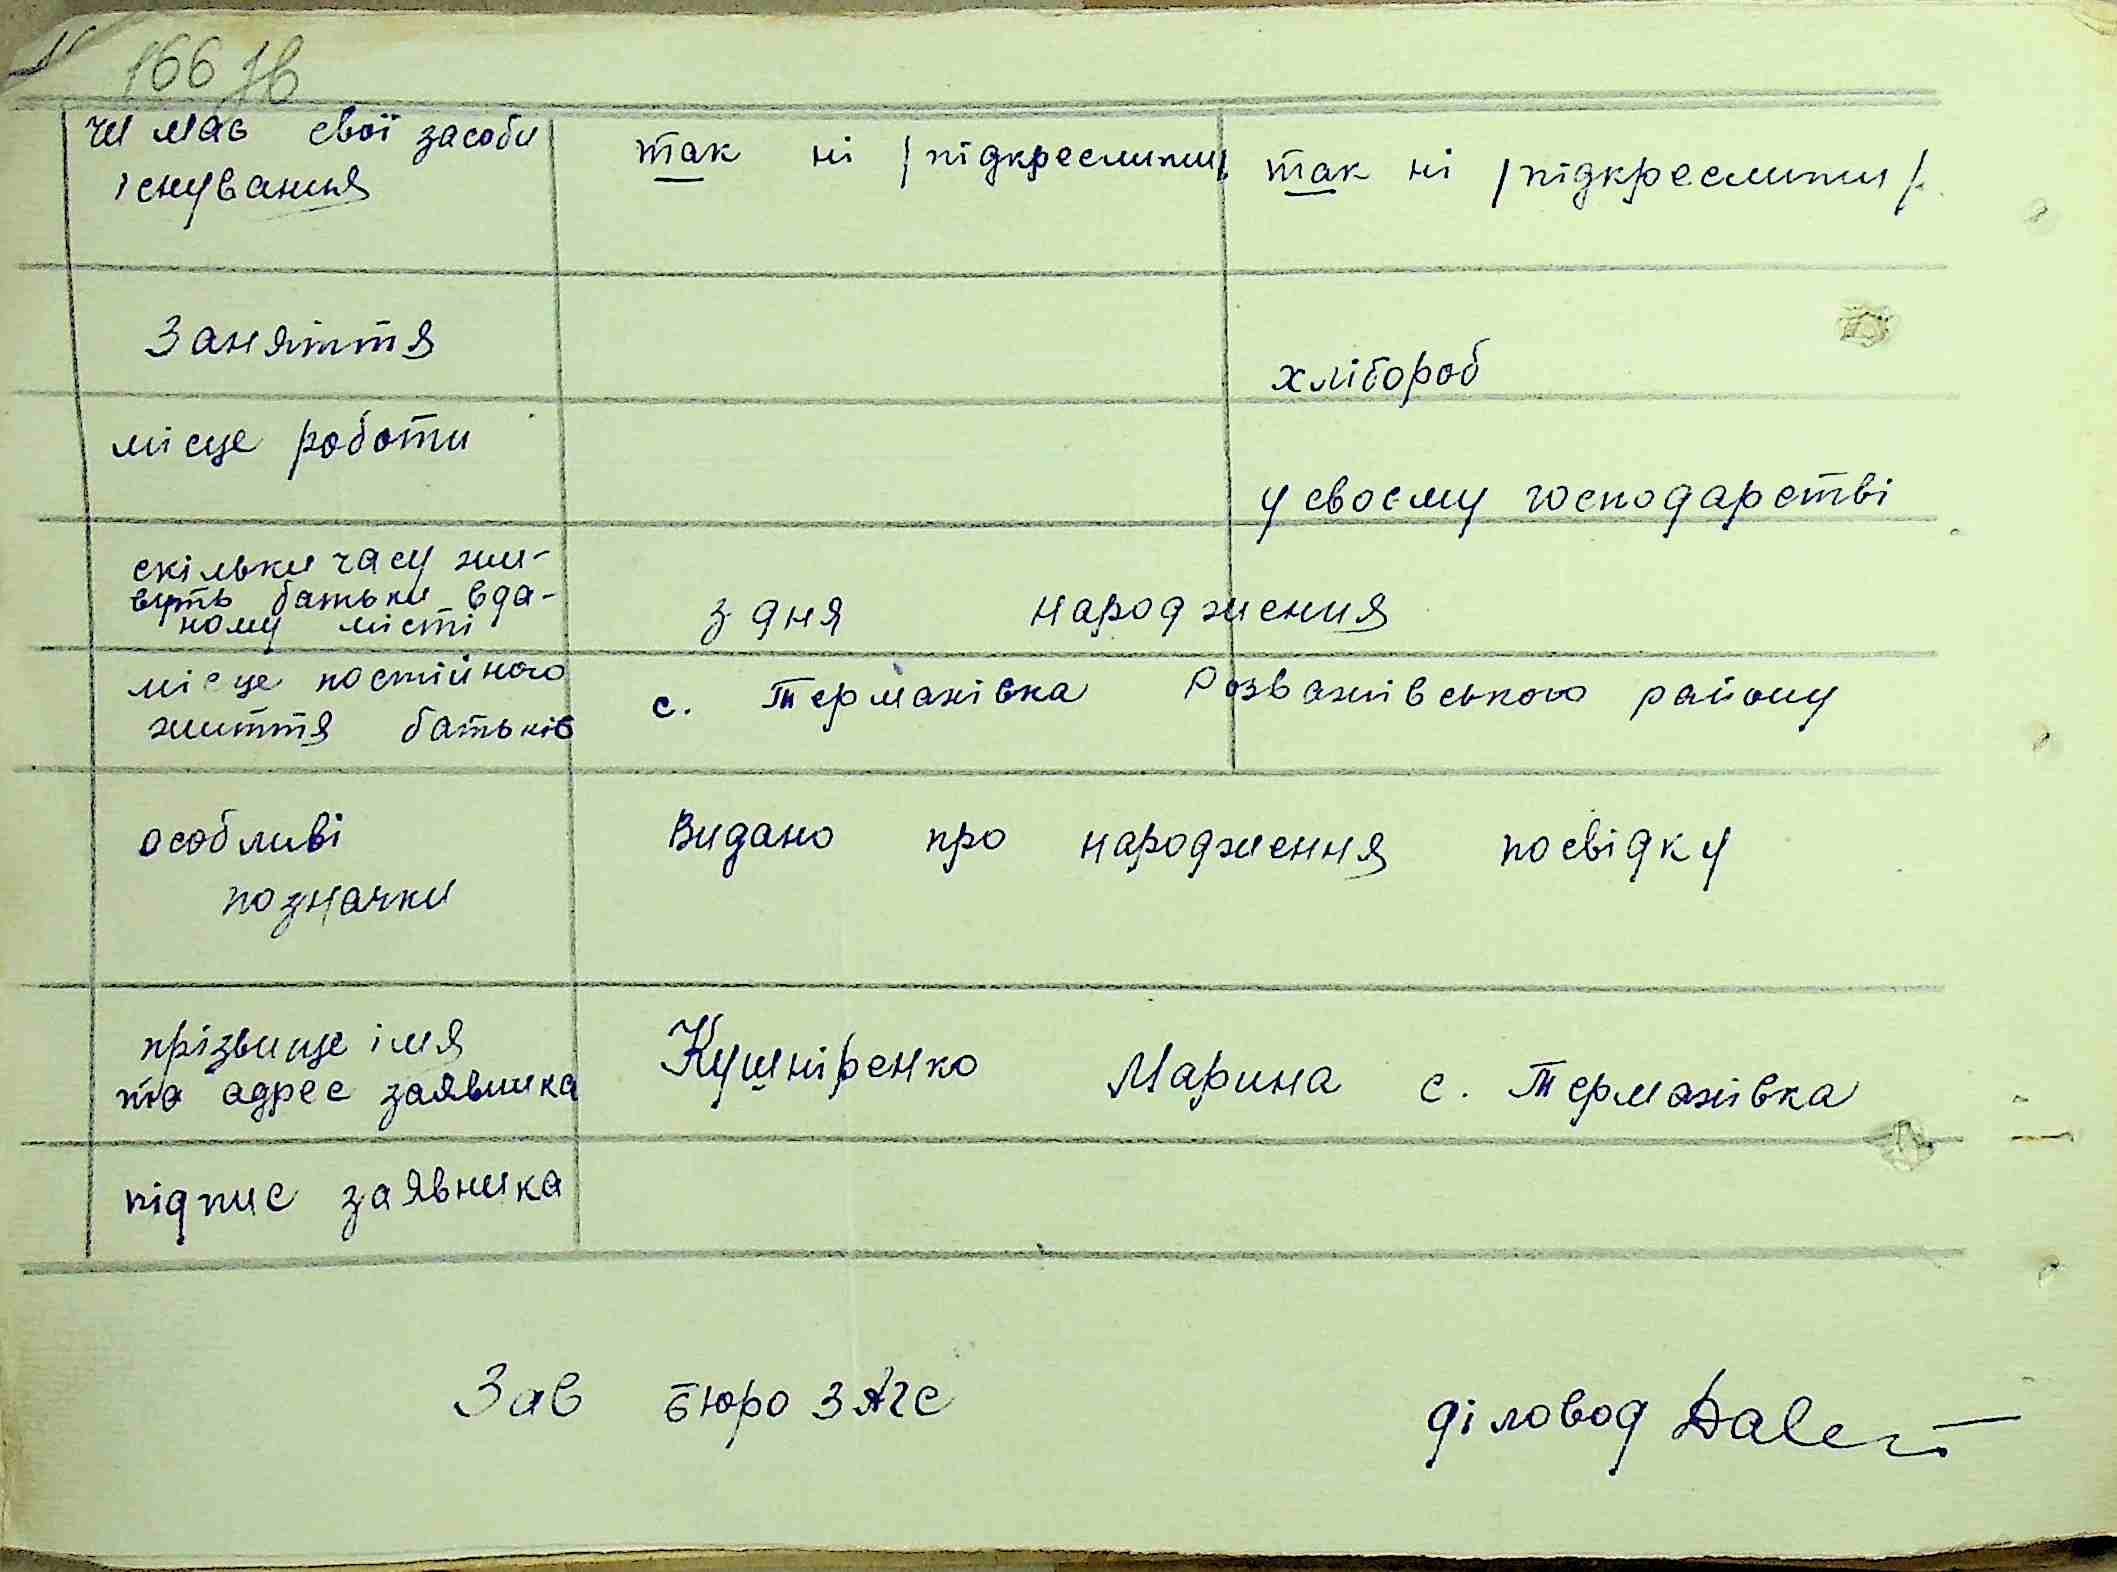 166 зв
чи має свої засоби
існування
так ні /підкреслити/
так ні /підкреслити/.
Заняття
хлібороб
місце роботи
у своєму господарстві
скільки часу жи-
вуть батьки в да-
ному місті
з дня народження
місце постійного
життя батьків
с. Термахівка Розважівського району
особливі
позначки
Видано про народження посвідку
прізвище імя
та адрес заявника
Кушніренко Марина с. Термахівка
підпис заявника
Зав бюро ЗАГС
діловод